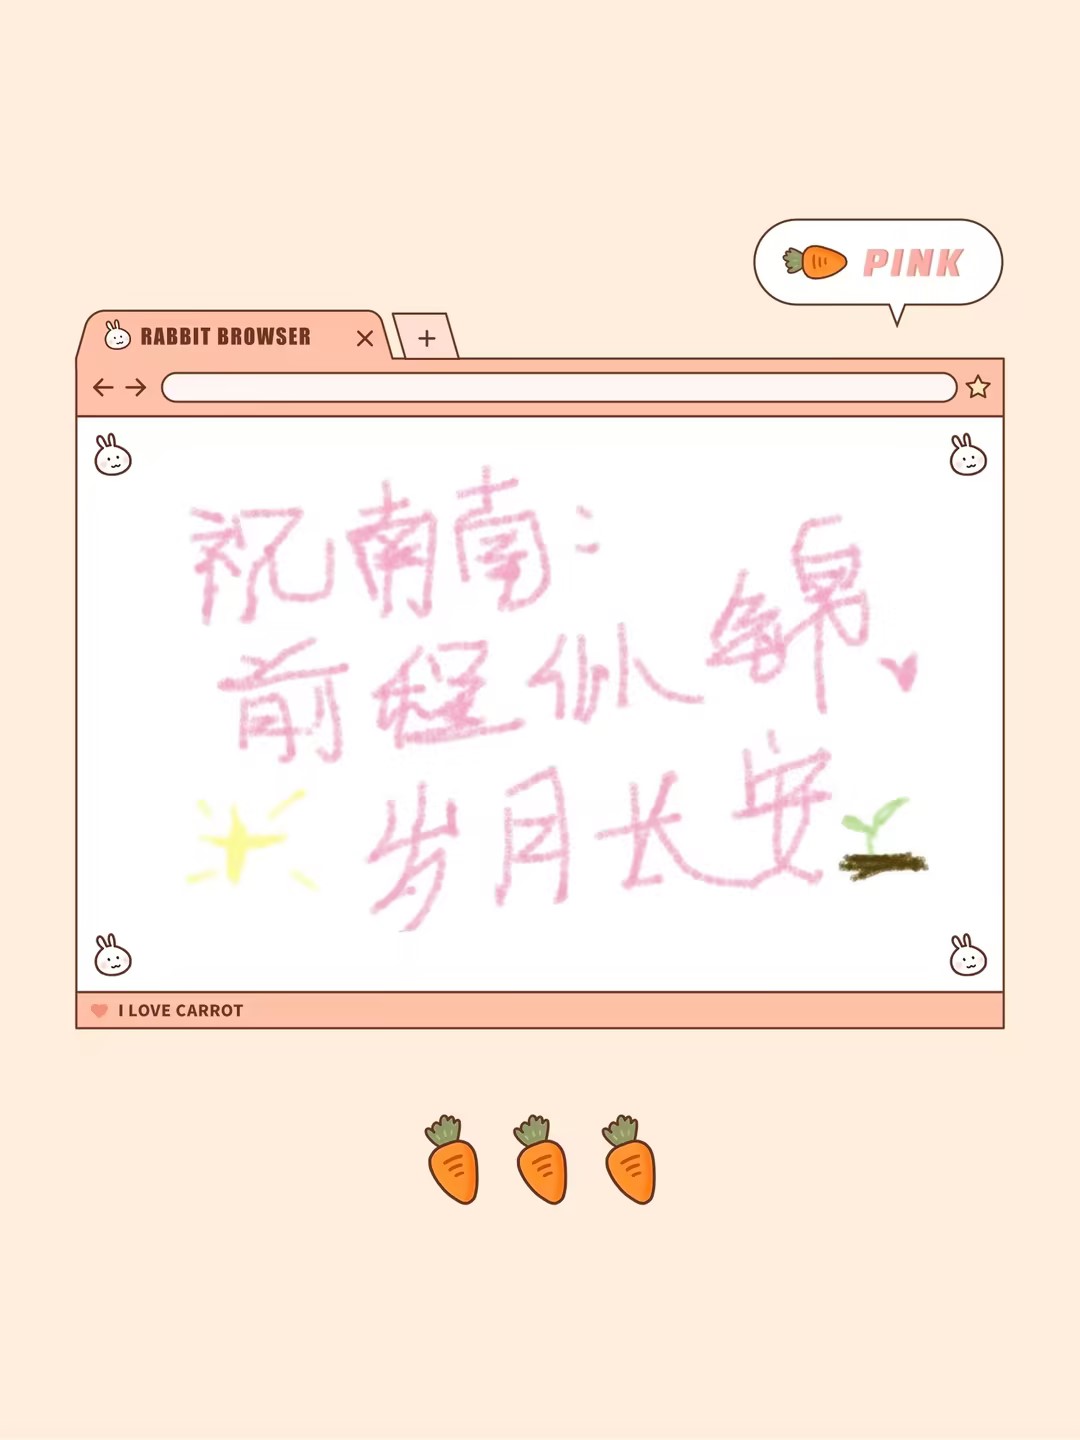 PINK
RABBIT BROWSER
祝南南：
前程似锦
岁月长安
I LOVE CARROT